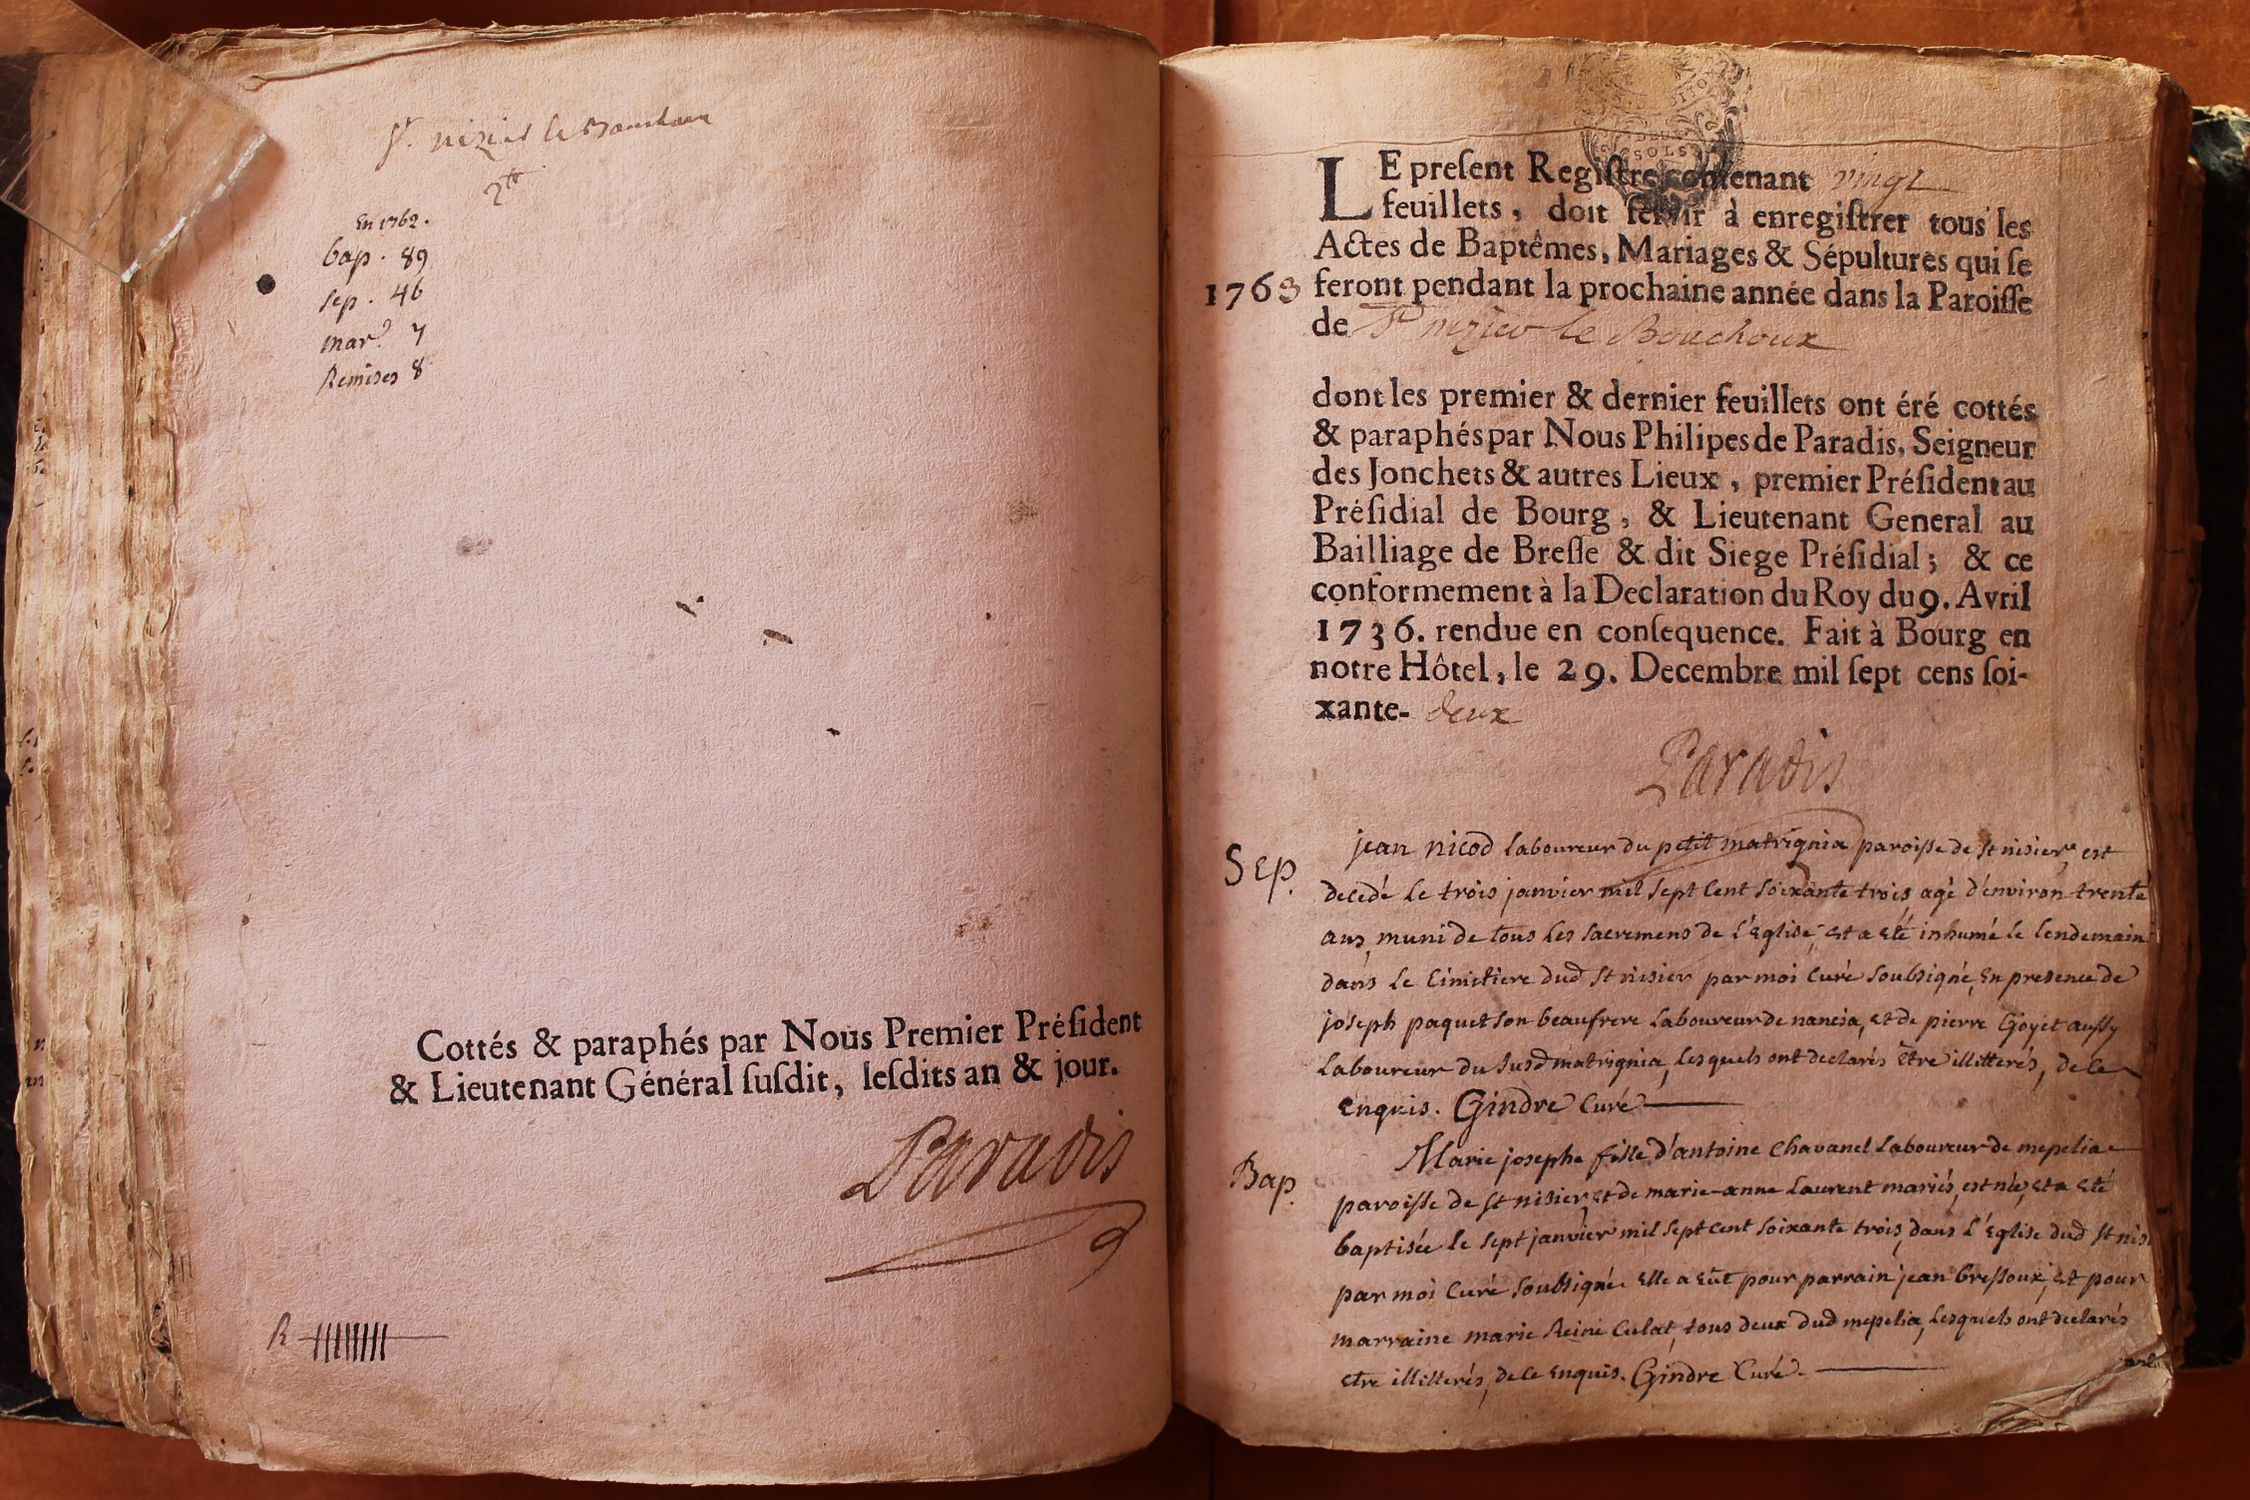 St. nizier le Bouchoux
2tt
En 1762.
bap. 89
sep. 46
mar. 7
Remises 8
Cottés & paraphés par Nous Premier Préſident
& Lieutenant Général ſuſdit, leſdits an & jour.
Paradis
R
SOLS
LE preſent Regiſtre contenant vingt
feuillets, doit ſervir à enregiſtrer tous les
Actes de Baptêmes, Mariages & Sépultures qui ſe
1763 feront pendant la prochaine année dans la Paroiſſe
de St nizier le Bouchoux
dont les premier & dernier feuillets ont éré cottés
& paraphés par Nous Philipes de Paradis, Seigneur
des Jonchets & autres Lieux, premier Préſident au
Préſidial de Bourg, & Lieutenant General au
Bailliage de Breſſe & dit Siege Préſidial; & ce
conformement à la Declaration du Roy du 9. Avril
1736. rendue en conſequence. Fait à Bourg en
notre Hôtel, le 29. Decembre mil ſept cens ſoi-
xante- deux
Paradis
Sep. jean nicod laboureur du petit matrignia paroisse de st nisier, est
decedé le trois janvier mil sept cent soixante trois agé d'environ trente
ans, muni de tous les sacremens de l'Eglise, et a eté inhumé le lendemain
dans le cimitiere dud st nisier par moi curé soussigné, en presence de
joseph paquet son beaufrere laboureur de nancia, et de pierre Goyet aussy
laboureur du susd matrignia, lesquels ont declarés être illitterés, de ce
enquis. Gindre curé
Bap. Marie josephe fille d'antoine chavanel laboureur de mepelia
paroisse de st nisier, et de marie-anne laurent mariés, est née, et a eté
baptisée le sept janvier mil sept cent soixante trois, dans l'Eglise dud st nis
par moi curé soussigné. elle a eüt pour parrain jean bressoux, et pour
marraine marie Reine culat, tous deux dud mepelia, lesquels ont declarés
etre illitterés, de ce enquis. Gindre Curé.